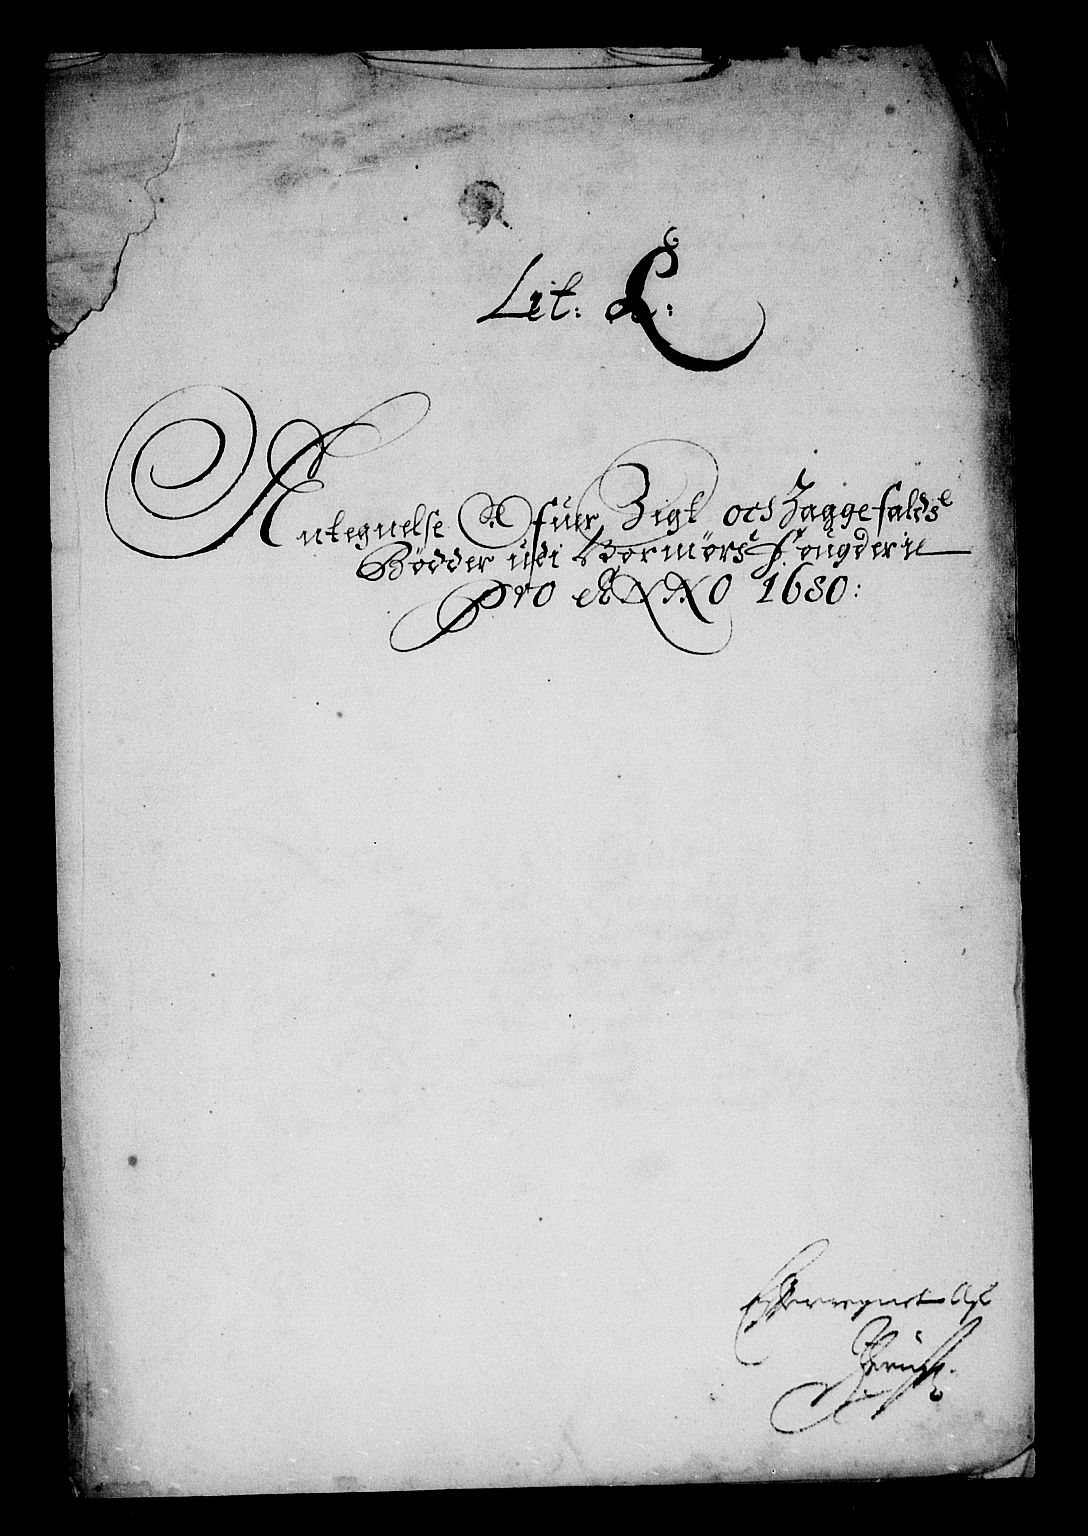 Lit: L:
Antegnelse Ofuer Sigt och Saggefalds
Bödder udi Normørs Fougderie
Pro ANNO 1680:
Efterregnet Af